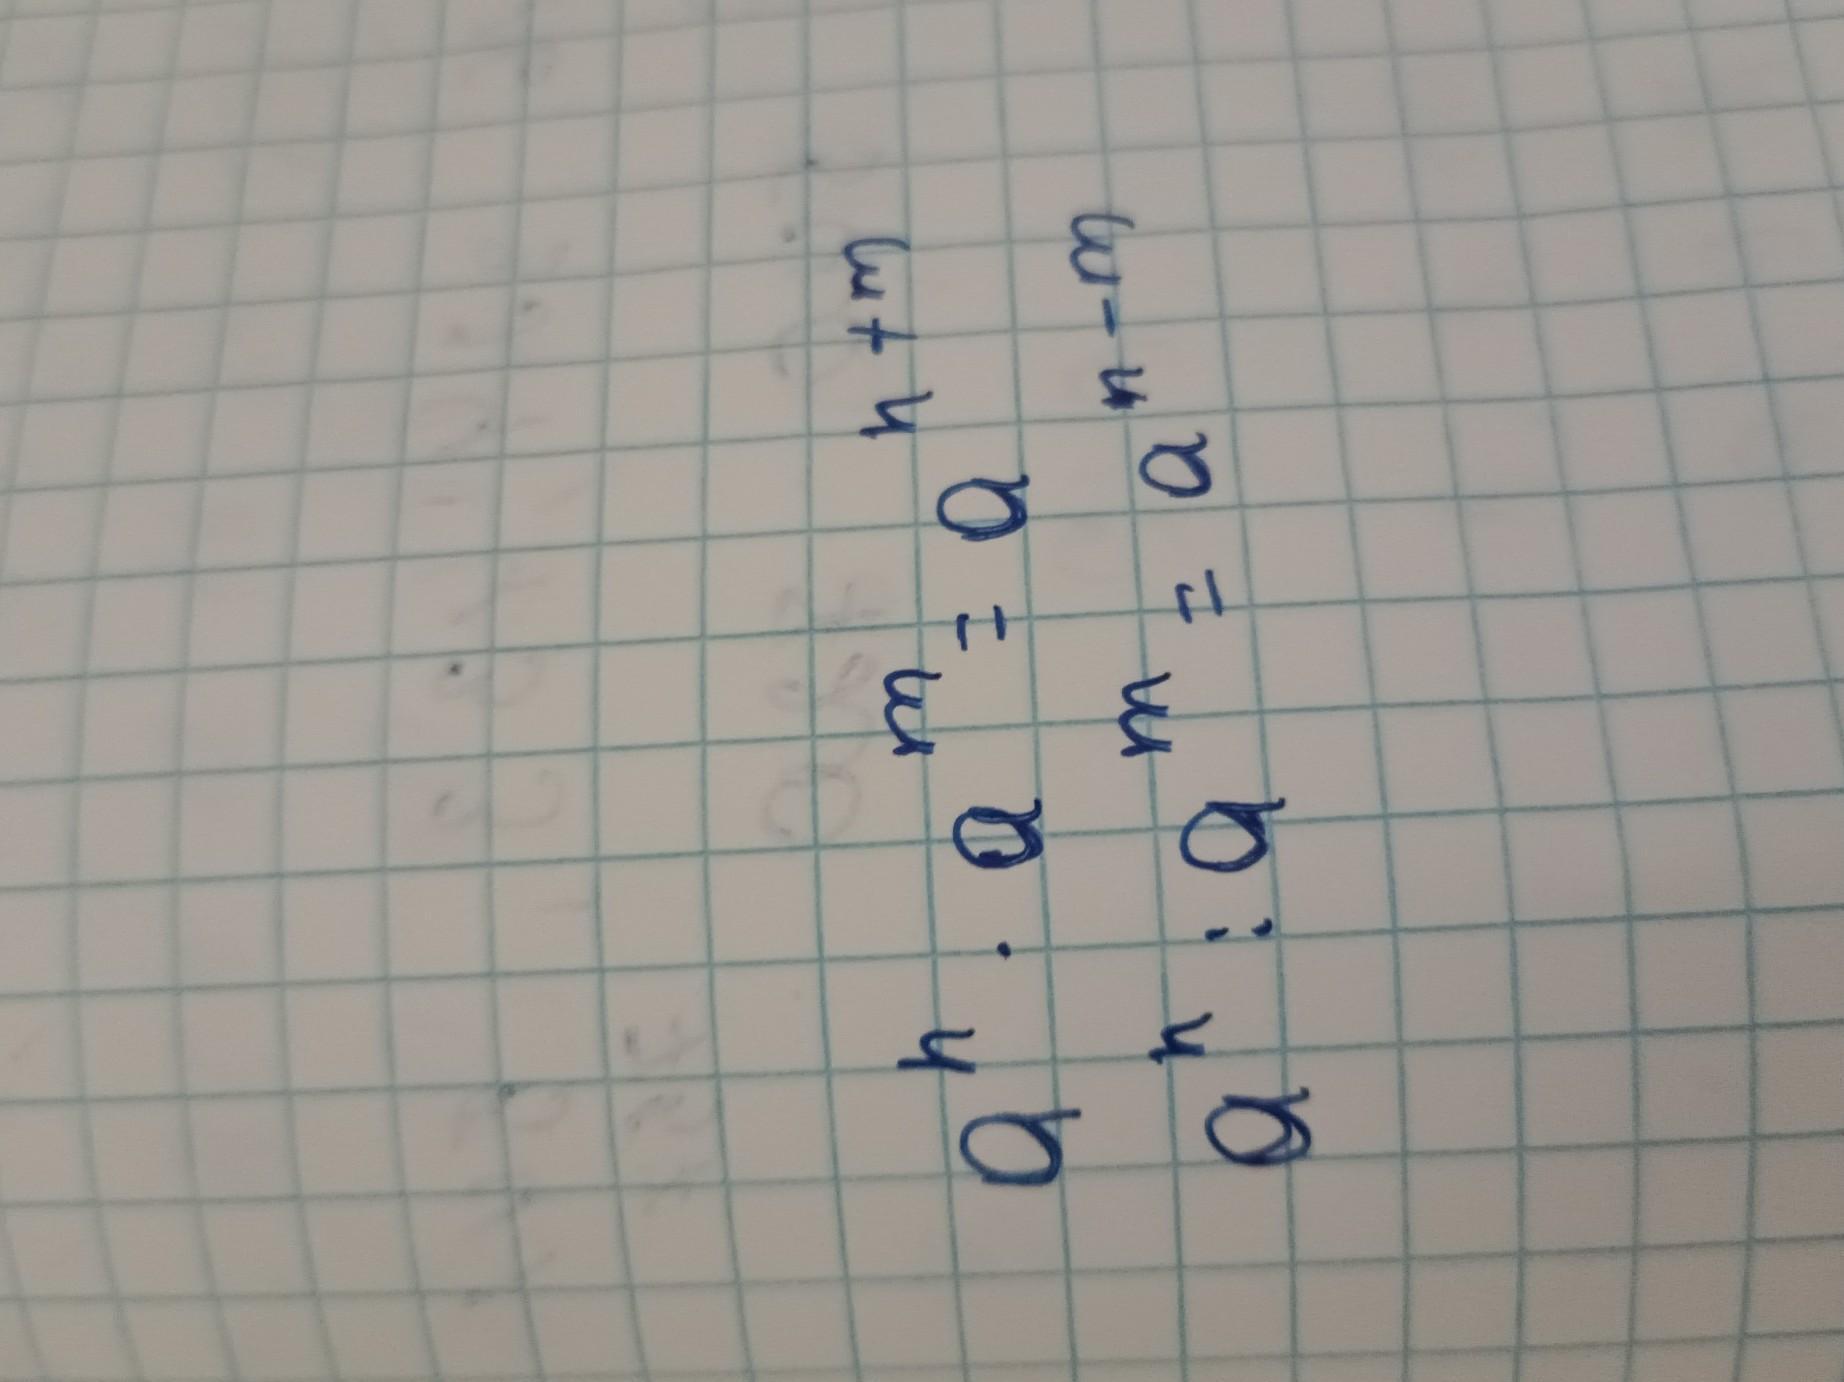 aⁿ · aᵐ = aⁿ⁺ᵐ
aⁿ : aᵐ = aⁿ⁻ᵐ